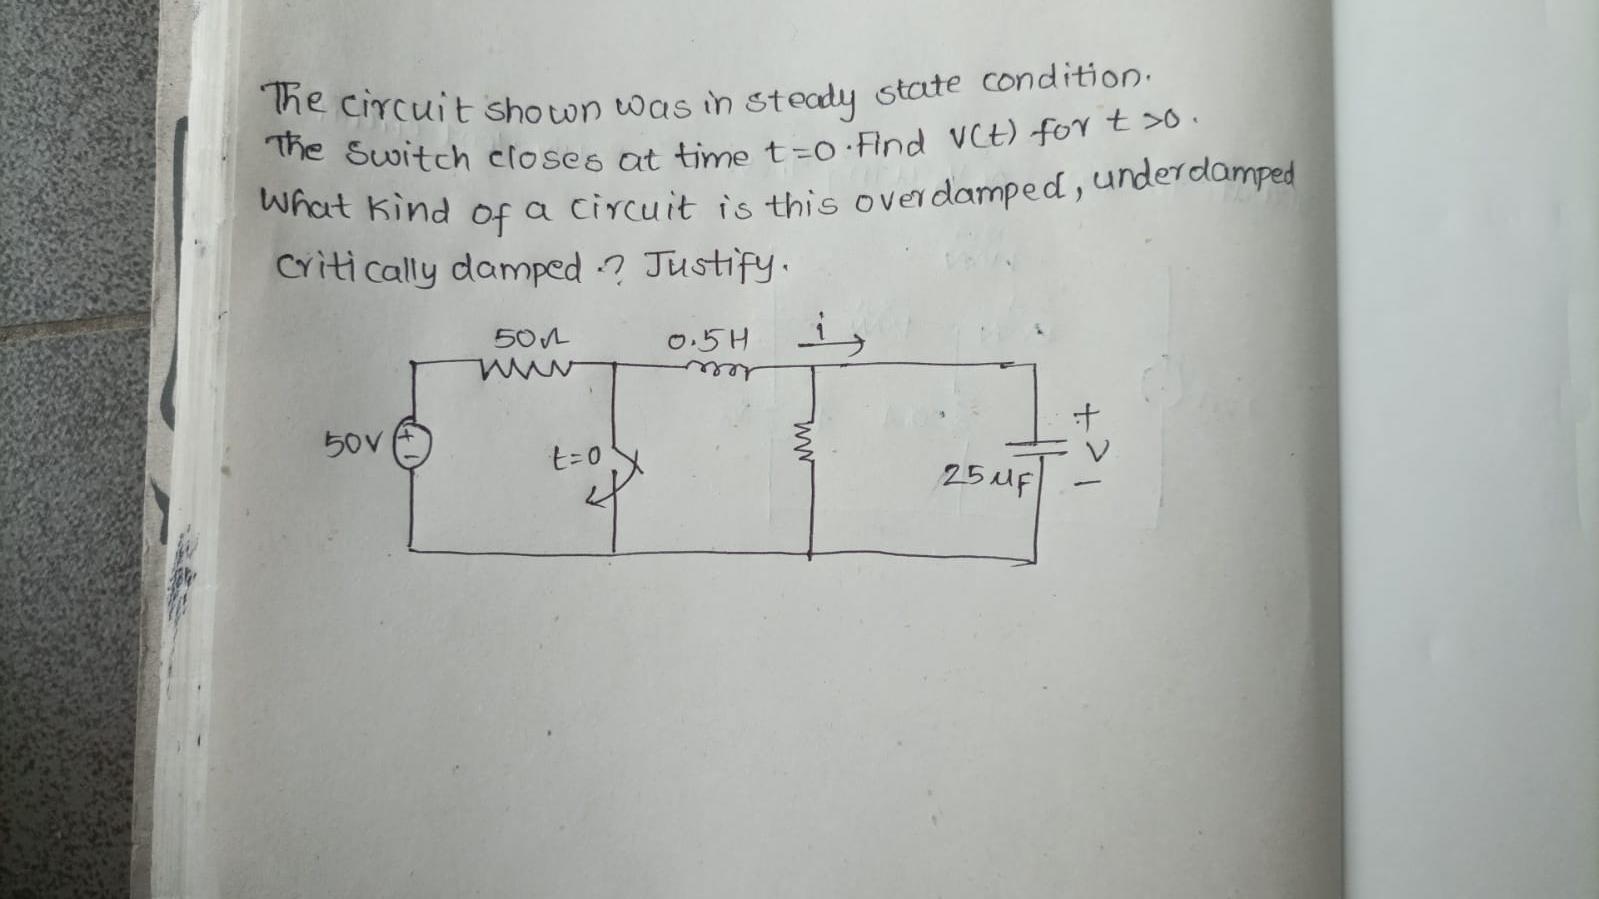 The circuit shown was in steady state condition.
The switch closes at time t=0. Find V(t) for t >0.
What kind of a circuit is this overdamped, underdamped
critically damped.? Justify.
50Ω 0.5H i
50V + - t=0 25 μF + V -